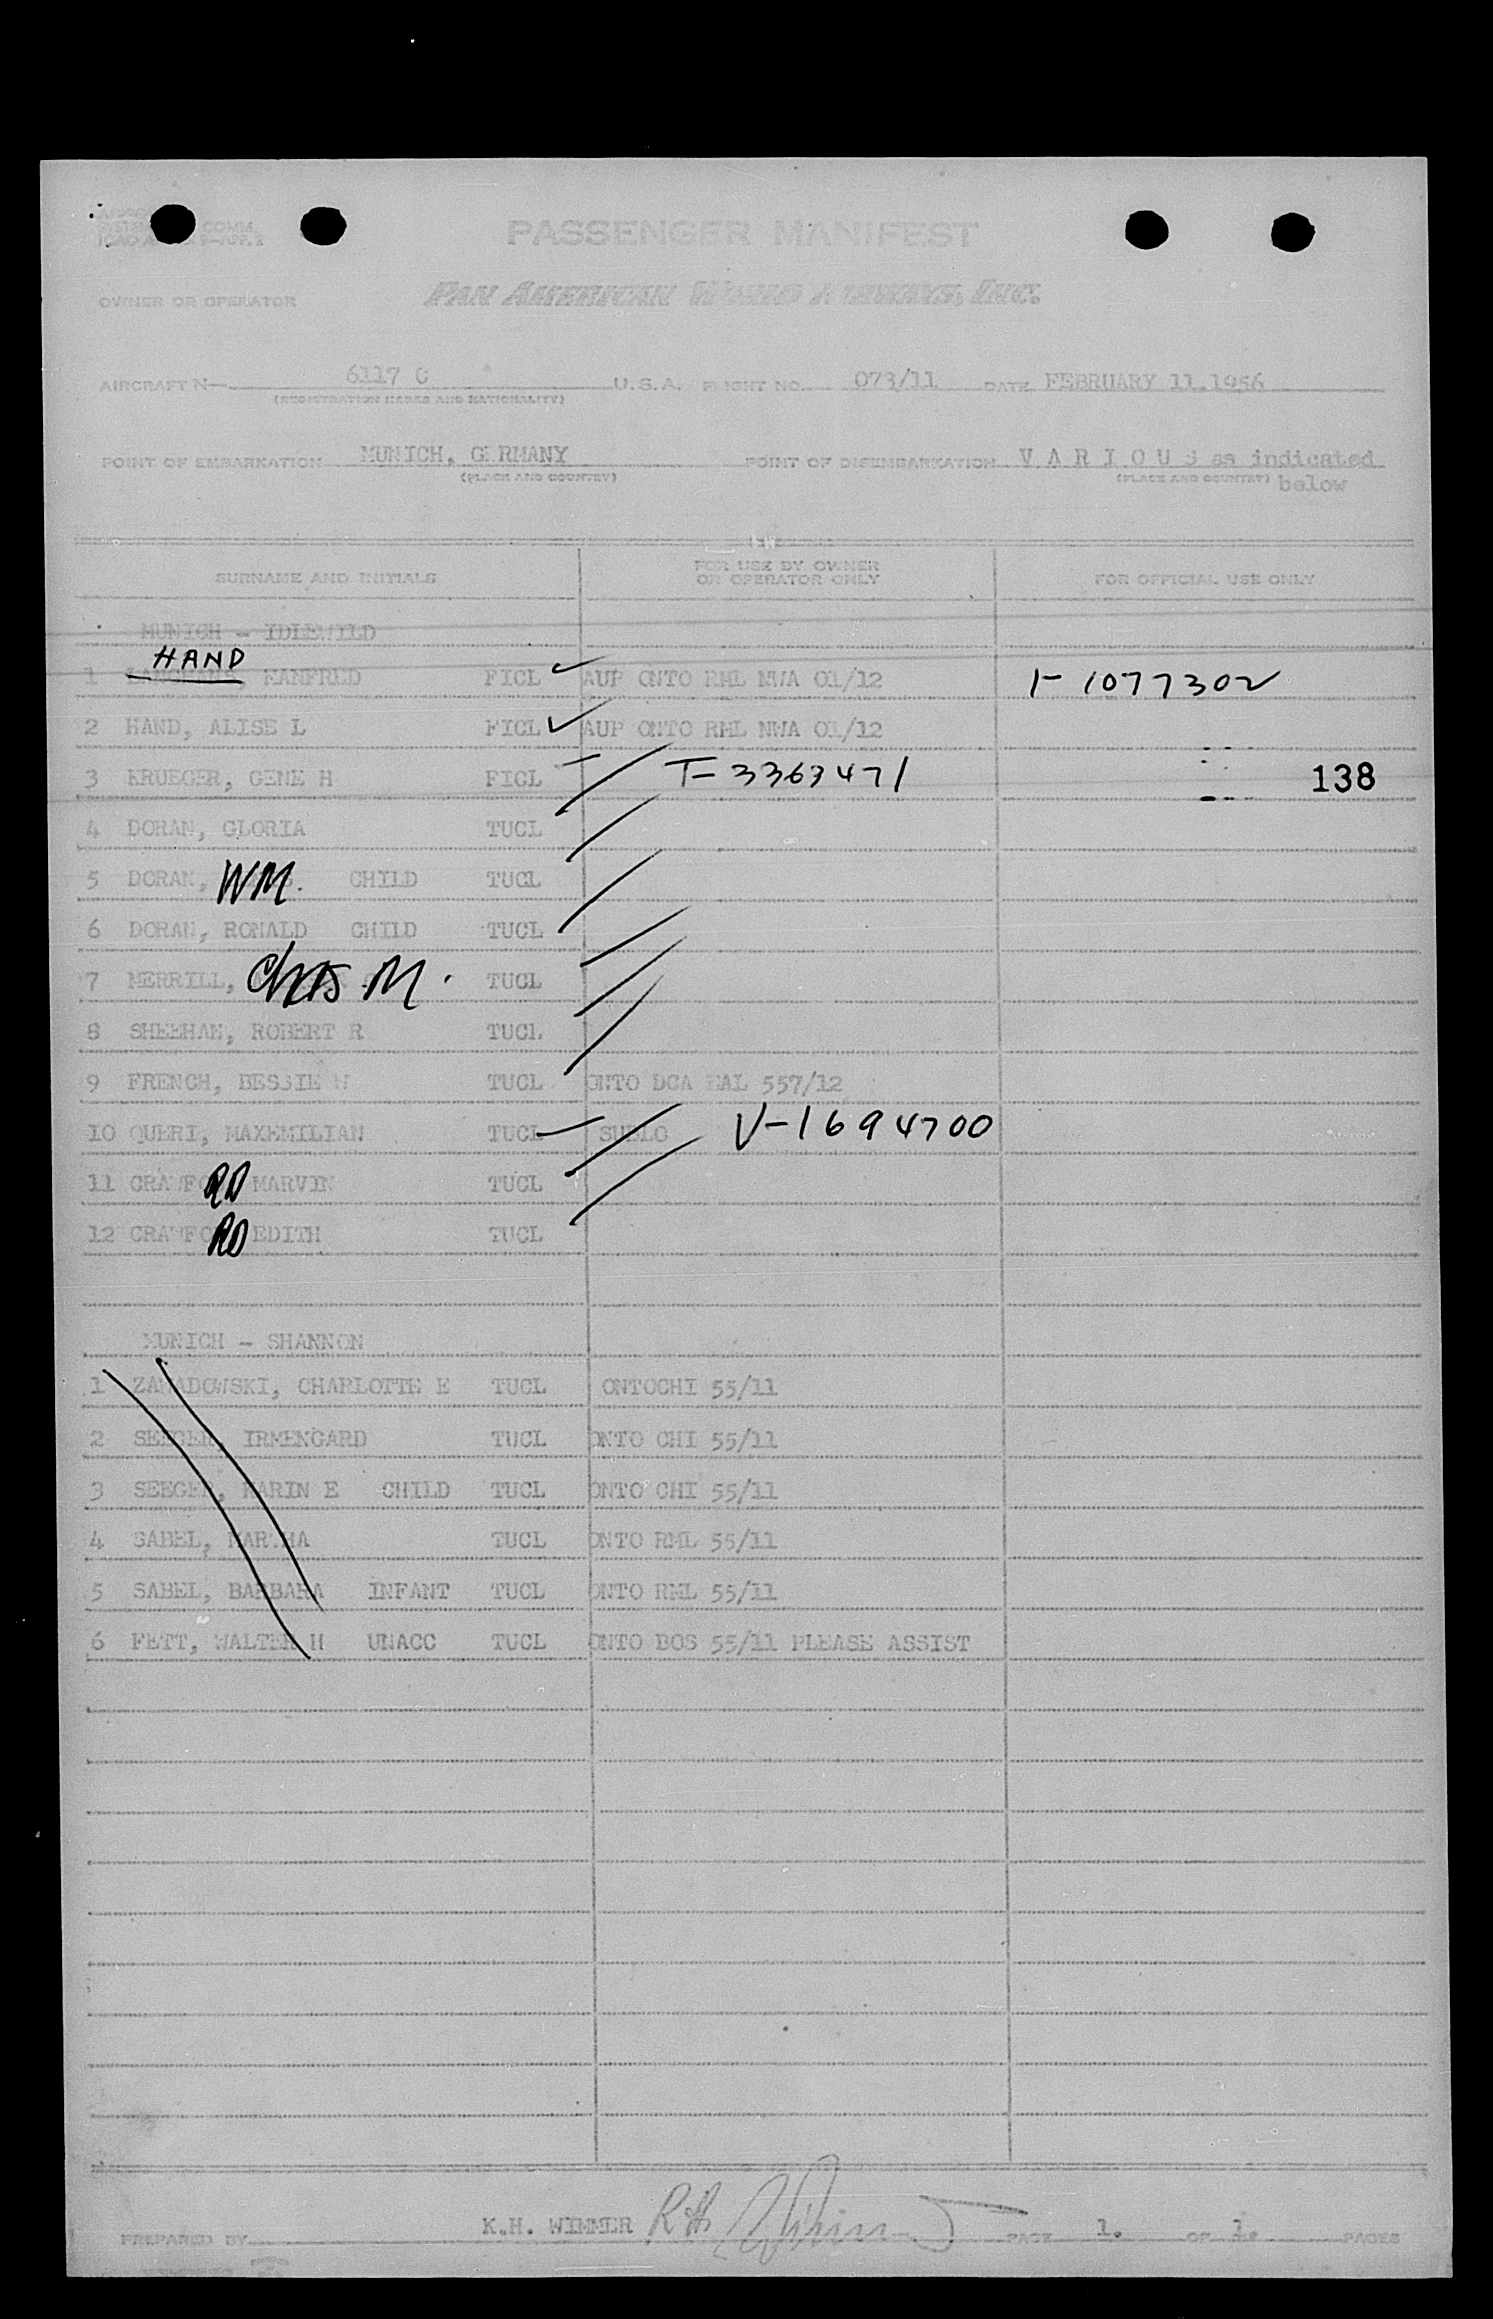 COMM.
PASSENGER MANIFEST
OWNER OR OPERATOR PAN AMERICAN WORLD AIRWAYS, INC.
AIRCRAFT N— 6117 C U.S.A. FLIGHT NO. 073/11 DATE FEBRUARY 11.1956
(REGISTRATION MARKS AND NATIONALITY)
POINT OF EMBARKATION MUNICH, GERMANY POINT OF DISEMBARKATION V A R I O U S as indicated
(PLACE AND COUNTRY) (PLACE AND COUNTRY) below
SURNAME AND INITIALS FOR USE BY OWNER OR OPERATOR ONLY FOR OFFICIAL USE ONLY
MUNICH - IDLEWILD
HAND
1 MANFRED FICL AUP ONTO RML NWA 01/12 1077302
2 HAND, ALISE L FICL AUP ONTO RML NWA 01/12
3 KRUEGER, GENE H FICL T-3363471 138
4 DORAN, GLORIA TUCL
5 DORAN, WM. CHILD TUCL
6 DORAN, RONALD CHILD TUCL
7 MERRILL, Chas. M. TUCL
8 SHEEHAN, ROBERT R TUCL
9 FRENCH, BESSIE W TUCL ONTO DCA EAL 557/12
10 QUERI, MAXEMILIAN TUCL V-1694700
11 CRAWFORD MARVIN TUCL
12 CRAWFORD EDITH TUCL
MUNICH - SHANNON
1 ZAWADOWSKI, CHARLOTTE E TUCL ONTOCHI 55/11
2 SEEGER, IRMENGARD TUCL ONTO CHI 55/11
3 SEEGER, KARIN E CHILD TUCL ONTO CHI 55/11
4 SABEL, MARTHA TUCL ONTO RML 55/11
5 SABEL, BARBARA INFANT TUCL ONTO RML 55/11
6 FETT, WALTER H UNACC TUCL ONTO BOS 55/11 PLEASE ASSIST
PREPARED BY K.H. WIMMER PAGE 1. OF 1. PAGES